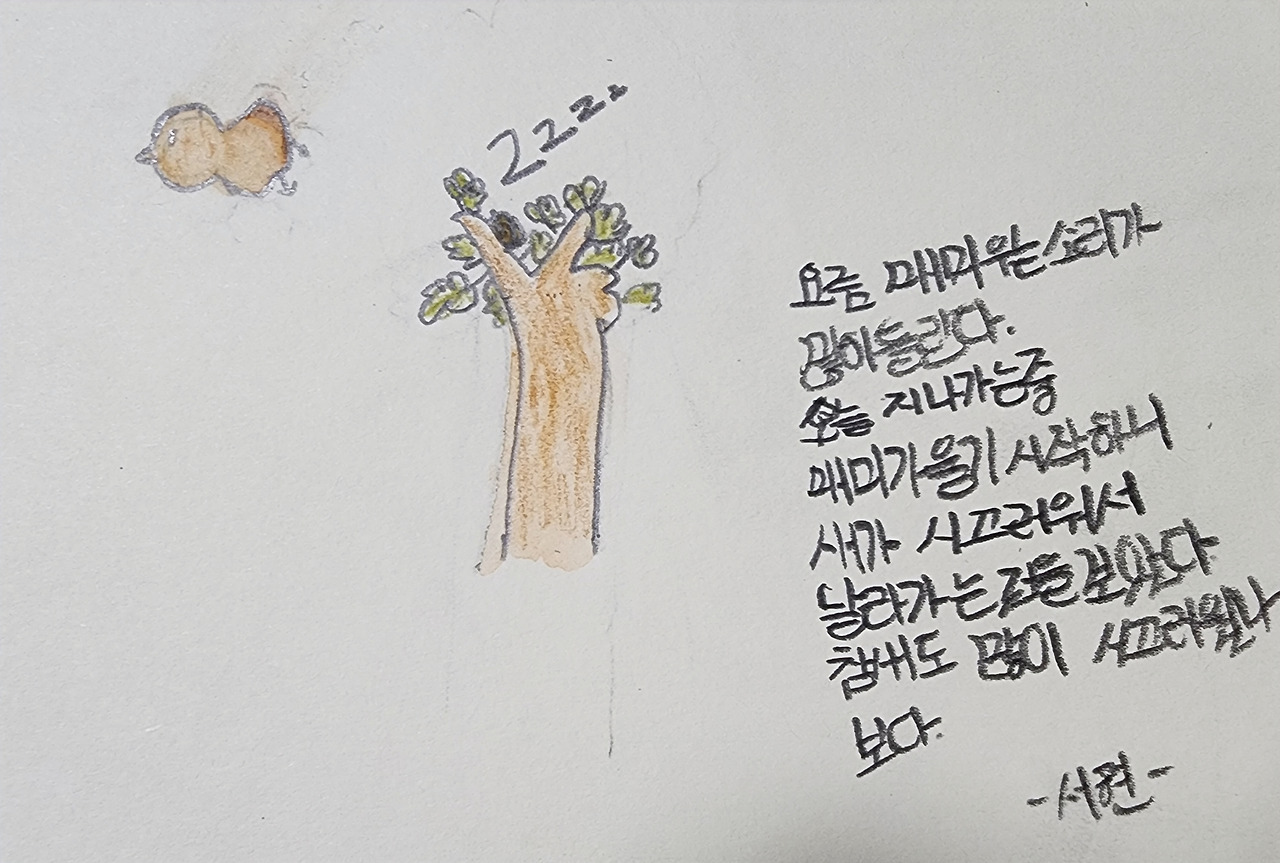 zzzz
요즘 매미우는소리가
많이들린다.
오늘 지나가는중
매미가울기시작하니
새가 시끄러워서
날라가는것을보았다
참새도 많이 시끄러웠나
보다.
-서현-